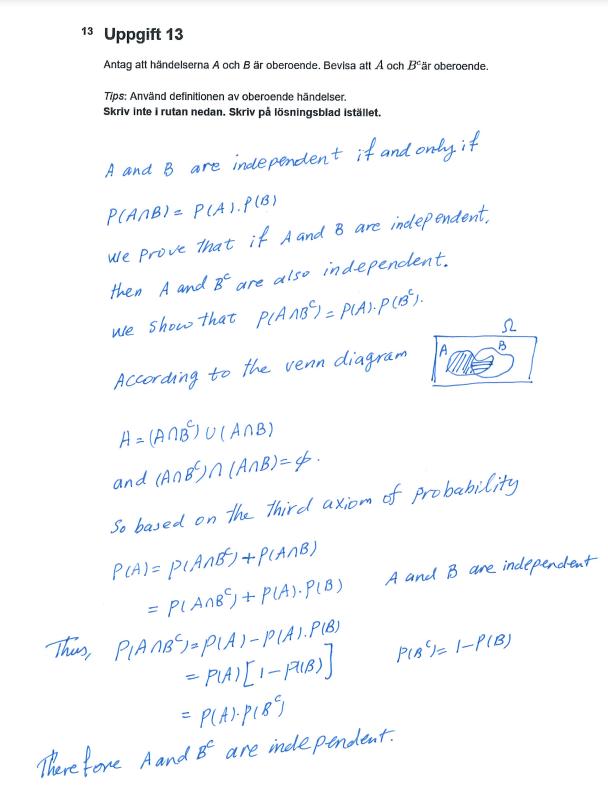 13 Uppgift 13
Antag att händelserna A och B är oberoende. Bevisa att A och Bᶜär oberoende.
Tips: Använd definitionen av oberoende händelser.
Skriv inte i rutan nedan. Skriv på lösningsblad istället.
A and B are independent if and only if
P(A∩B) = P(A).P(B)
We prove that if A and B are independent,
then A and Bᶜ are also independent.
we show that P(A∩Bᶜ) = P(A).P(Bᶜ).
Ω
According to the venn diagram
A B
A = (A∩Bᶜ) ∪ (A∩B)
and (A∩Bᶜ) ∩ (A∩B) = ϕ.
So based on the third axiom of probability
P(A) = P(A∩Bᶜ) + P(A∩B)
= P(A∩Bᶜ) + P(A).P(B) A and B are independent
Thus, P(A∩Bᶜ) = P(A) - P(A).P(B)
= P(A)[1-P(B)] P(Bᶜ) = 1-P(B)
= P(A).P(Bᶜ)
Therefore A and Bᶜ are independent.